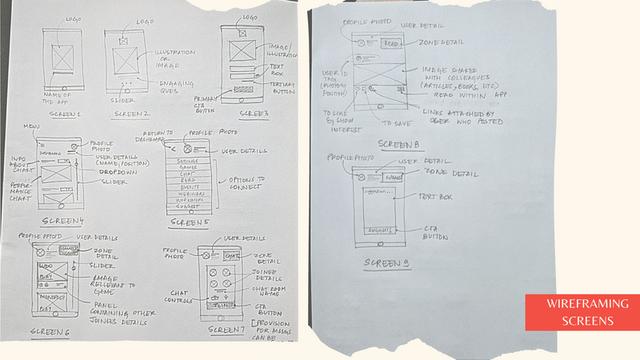 LOGO
LOGO
LOGO
ILLUSTRATION
OR
IMAGE
ENGAGING
QUES
SLIDER
NAME OF
THE APP
IMAGE/
TEXT
BOX
TERTIARY
BUTTON
PRIMARY
CTA
BUTTON
SCREEN 1
SCREEN 2
SCREEN 3
MENU
PROFILE
PHOTO
USER DETAILS
(NAME/POSITION)
DROPDOWN
SLIDER
INFO
ABOUT
CHART
PERFOR-
MANCE
CHART
SCREEN 4
RETURN TO
DASHBOARD
PROFILE PHOTO
USER DETAILS
SETTINGS
CHAT
READ
EVENTS
OPTIONS TO
CONNECT
SCREEN 5
PROFILE PHOTO
USER DETAILS
ZONE
DETAIL
SLIDER
IMAGE
RELEVANT TO
GAME
PANEL
CONTAINING OTHER
JOINEES DETAILS
SCREEN 6
USER DETAILS
PROFILE
PHOTO
ZONE
DETAIL
JOINEE
DETAILS
CHAT ROOM
NAME
CHAT
CONTROLS
CTA
BUTTON
SCREEN 7
[PROVISION
CAN BE
PROFILE PHOTO
USER DETAIL
READ
ZONE DETAIL
IMAGE SHARED
WITH COLLEAGUES
(ARTICLES, BOOKS, ETC)
READ WITHIN APP
LINKS ATTACHED BY
USER WHO POSTED
TO SAVE
INTEREST
SCREEN 8
PROFILE PHOTO
USER DETAIL
ZONE DETAIL
TEXT BOX
CTA
BUTTON
SCREEN 9
WIREFRAMING
SCREENS